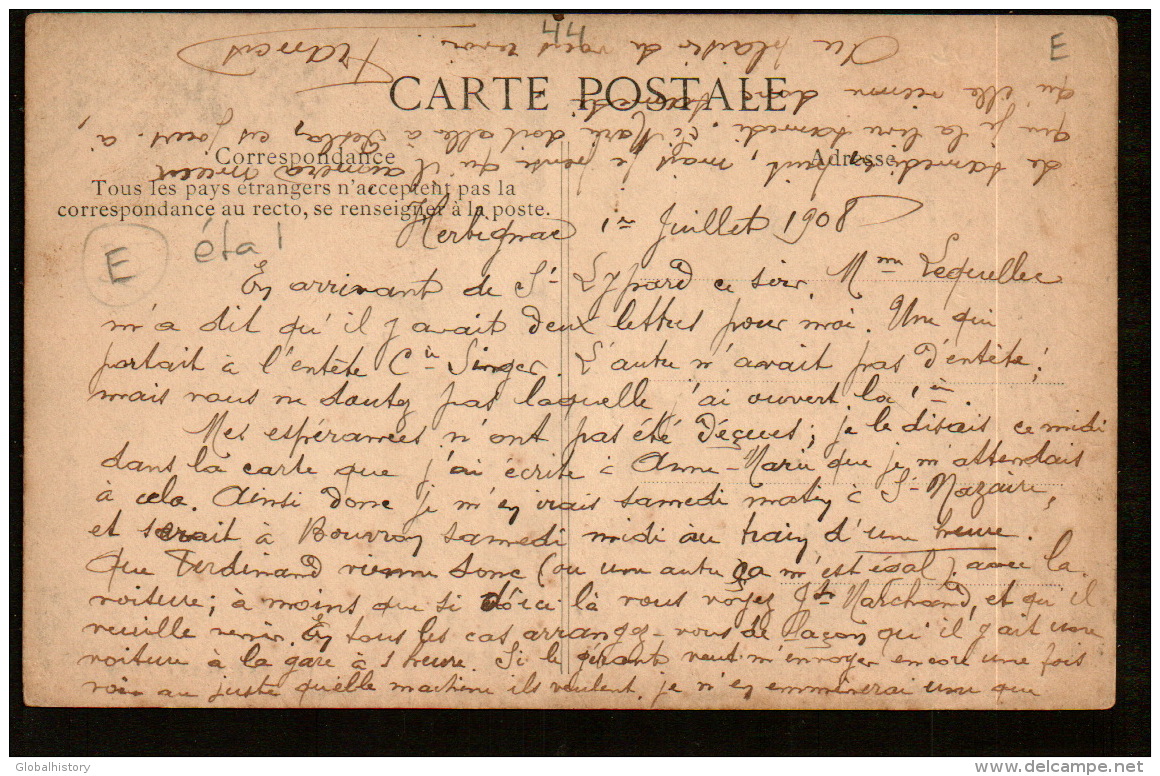 44
E
CARTE POSTALE
Correspondance
Adresse
Tous les pays étrangers n'acceptent pas la
correspondance au recto, se renseigner à la poste.
E
éta!
Herbignac 1er Juillet 1908
En arrivant de St Lypard ce soir, Mme Lequellec
m'a dit qu'il y avait deux lettres pour moi. Une qui
portait à l'entête Cie Singer. L'autre n'avait pas d'entête;
mais vous ne doutez pas laquelle j'ai ouvert la 1ère.
Mes espérances n'ont pas été déçues; je le disais ce midi
dans la carte que j'ai écrite à Anne-Marie que je m'attendais
à cela. Ainsi donc je m'en irais samedi matin à St-Nazaire,
et serait à Bouvron samedi midi au train d'une heure.
Que Ferdinand vienne donc (ou une autre ça m'est égal) avec la
voiture; à moins que si d'ici là vous voyez Marchand, et qu'il
veuille venir. En tous les cas, arrangez-vous de façon qu'il y ait une
voiture à la gare à 1 heure. Si le gérant veut m'envoyer encore une fois
voir au juste quelle machine ils veulent, je n'en emmènerai une que
de samedi en huit, mais je pense qu'il aimera mieux
que je la livre samedi. Si Marie doit aller à ces jours-ci,
qu'elle vienne donc samedi
Au plaisir de vous revoir
Francis
Globalhistory
delcampe.net